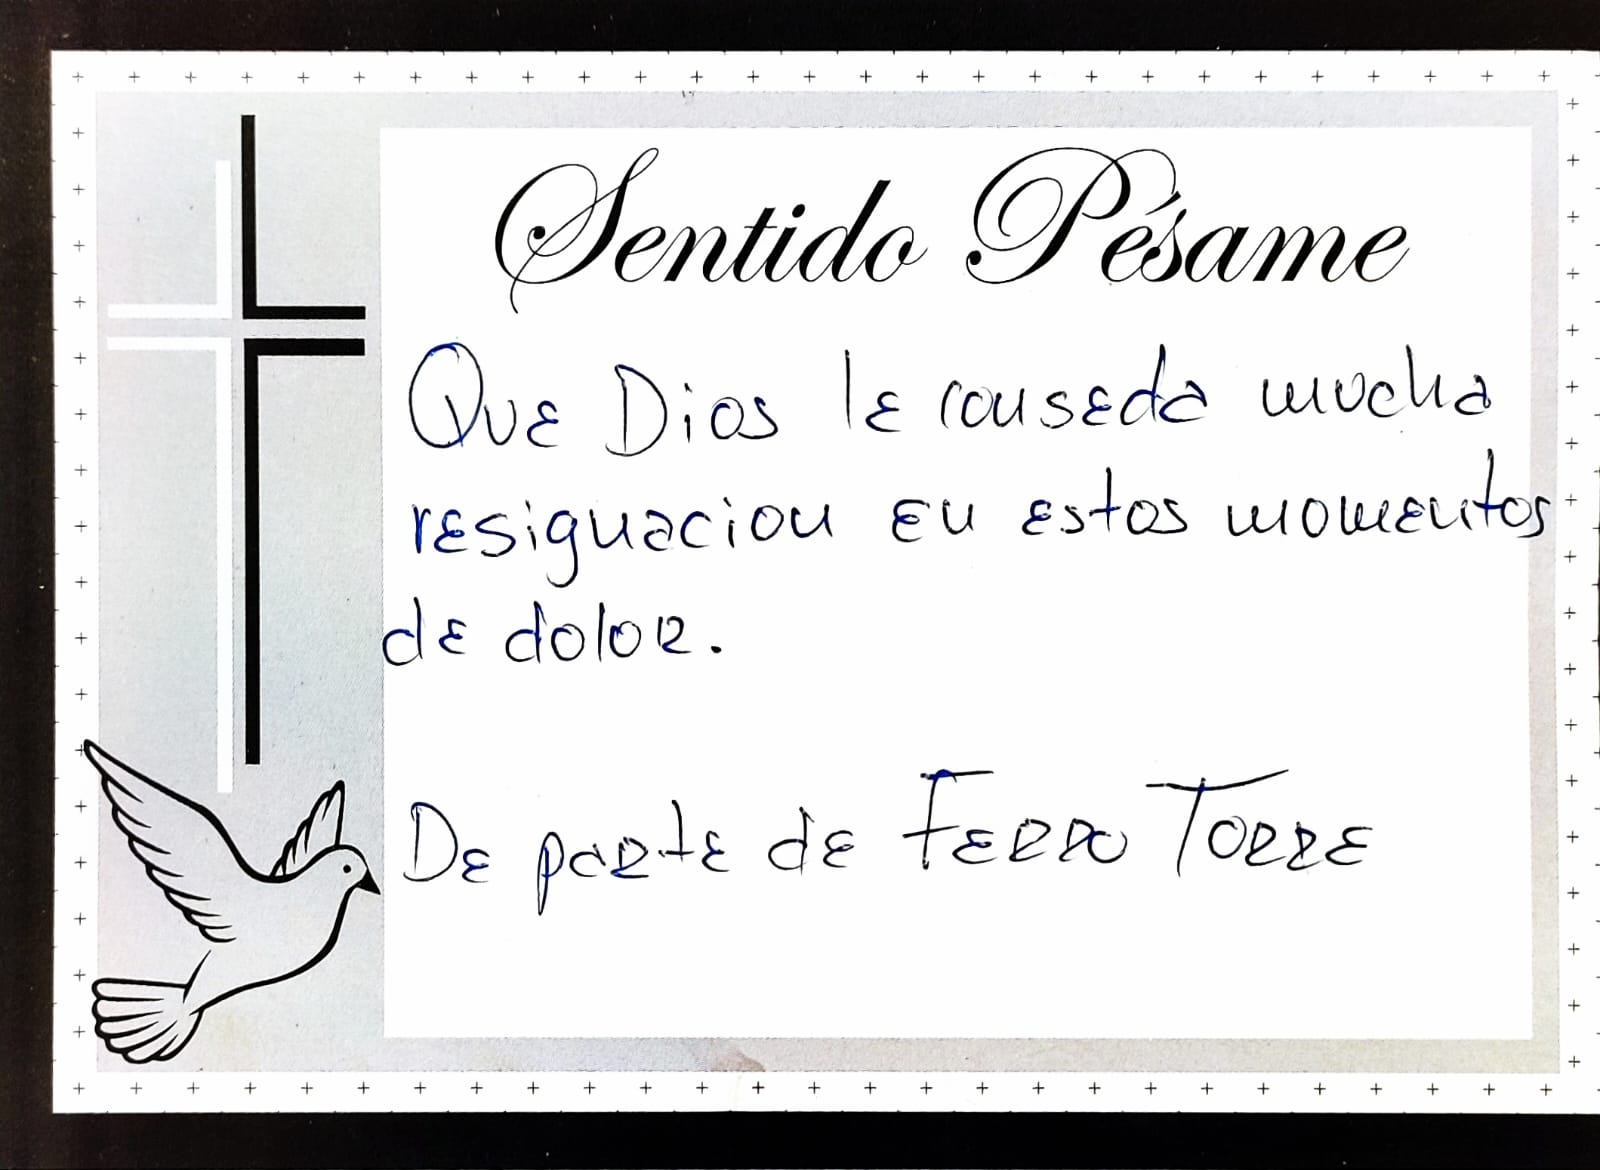 Sentido Pésame
Que Dios le conseda mucha
resignacion en estos momentos
de dolor.
De parte de Ferro Torre